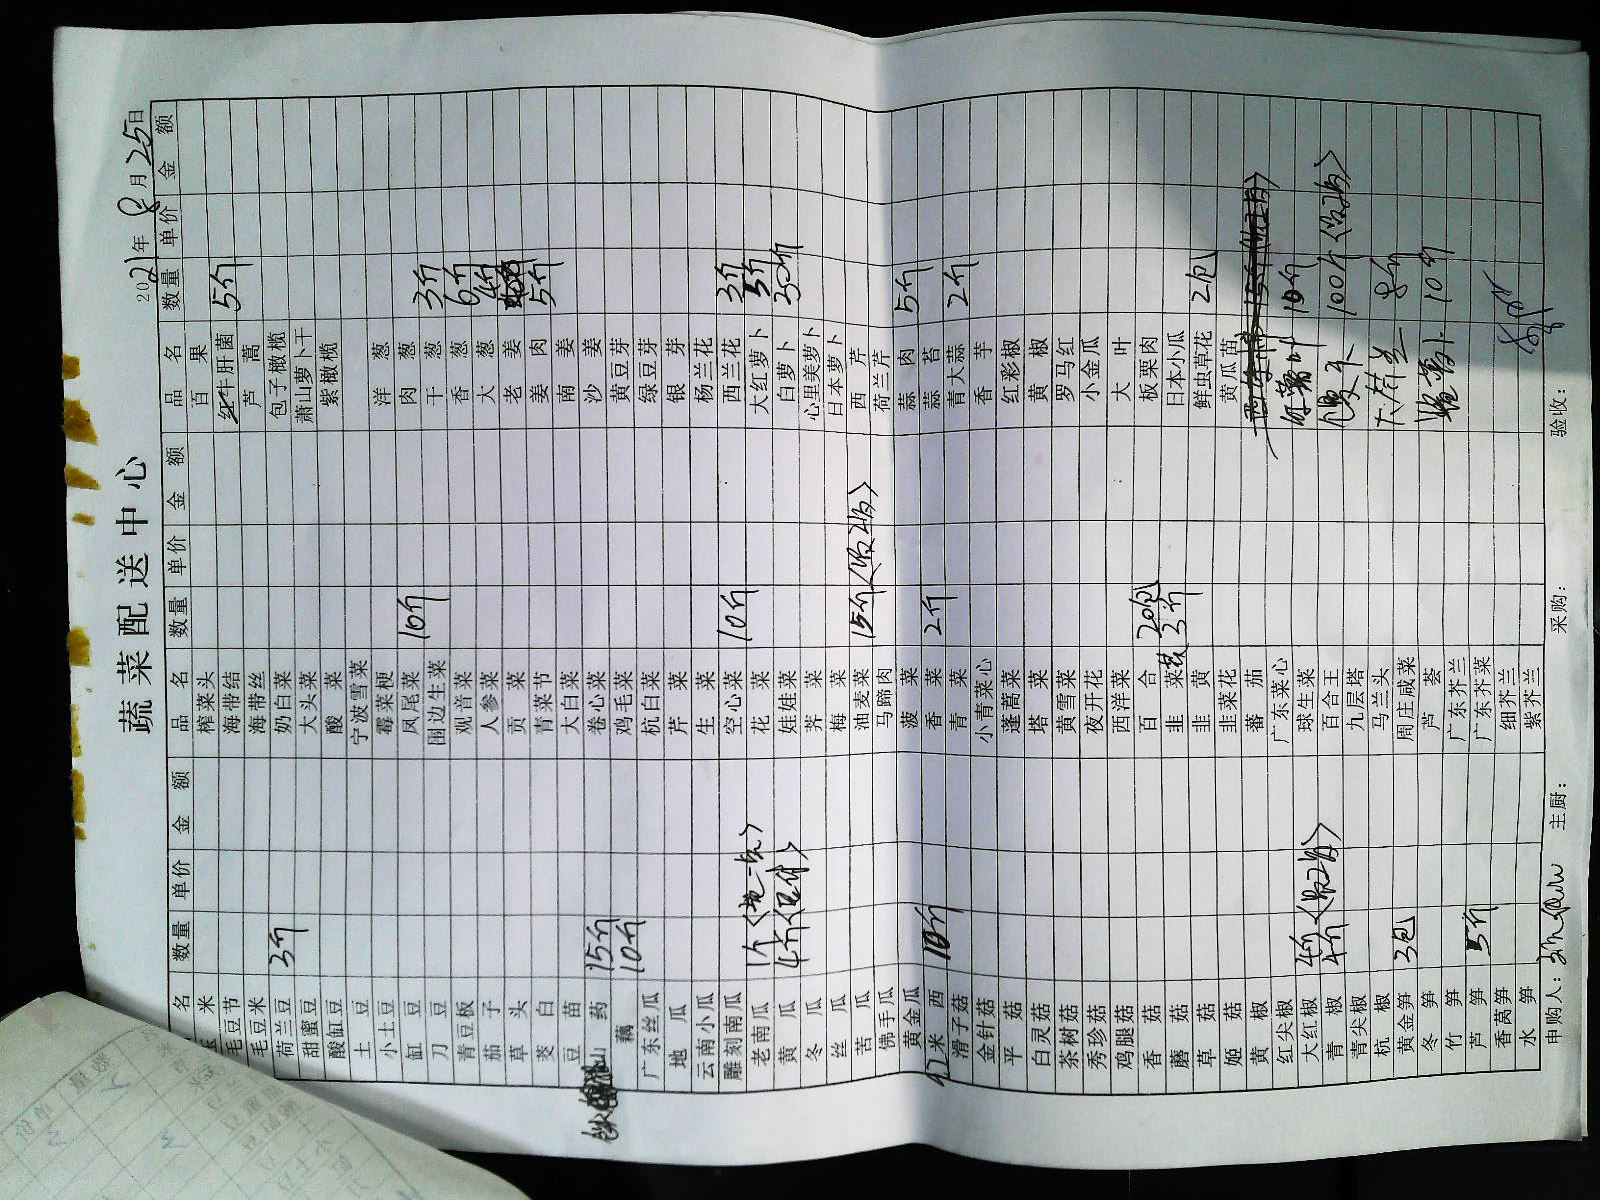 蔬菜配送中心
2021年8月25日
名 数量 单价 金额 品名 数量 单价 金额 品名 数量 单价 金额
玉米 榨菜头 百果
毛豆节 海带结 牛肝菌 5斤
毛豆米 海带丝 芦蒿
荷兰豆 3斤 奶白菜 包子橄榄
甜蜜豆 大头菜 萧山萝卜干
酸缸豆 酸菜 紫橄榄
土豆 宁波雪菜
小土豆 霉菜梗 洋葱
缸豆 凤尾菜 10斤 肉葱
刀豆 围边生菜 干葱 3斤
青豆板 观音菜 香葱 6斤
茄子 人参菜 大葱 4斤
草头 贡菜 老姜
茭白 青菜节 姜肉 5斤
豆苗 大白菜 南姜
山药 15斤 卷心菜 沙姜
藕 10斤 鸡毛菜 黄豆芽
广东丝瓜 杭白菜 绿豆芽
地瓜 芹菜 银芽
云南小瓜 生菜 杨兰花
雕刻南瓜 空心菜 10斤 西兰花 3斤
老南瓜 1个 花菜 大红萝卜 5斤
黄瓜 4斤 娃娃菜 白萝卜 30斤
冬瓜 荠菜 心里美萝卜
丝瓜 梅菜 日本萝卜
苦瓜 油麦菜 15斤 西芹
佛手瓜 马蹄肉 荷兰芹
黄金瓜 菠菜 蒜肉 5斤
西米 10斤 香菜 2斤 蒜苔
滑子菇 青菜 青大蒜 2斤
金针菇 小青菜心 香芋
平菇 蓬蒿菜 红彩椒
白灵菇 塔菜 黄椒
茶树菇 黄雪菜 罗马红
秀珍菇 夜开花 小金瓜
鸡腿菇 西洋菜 大叶
香菇 百合 20包 板栗肉
蘑菇 韭菜 3斤 日本小瓜
草菇 韭黄 鲜虫草花 2包
姬菇 韭菜花 黄瓜茵
黄椒 番茄
红尖椒 广东菜心 10斤
大红椒 4斤 球生菜
青椒 4斤 百合王 100斤
青尖椒 九层塔
杭椒 马兰头 8斤
黄金笋 3包 周庄咸菜
冬笋 芦荟 10斤
竹笋 广东芥兰
芦笋 5斤 广东芥菜
香莴笋 细芥兰
水笋 紫芥兰
申购人： 主厨： 采购： 验收：